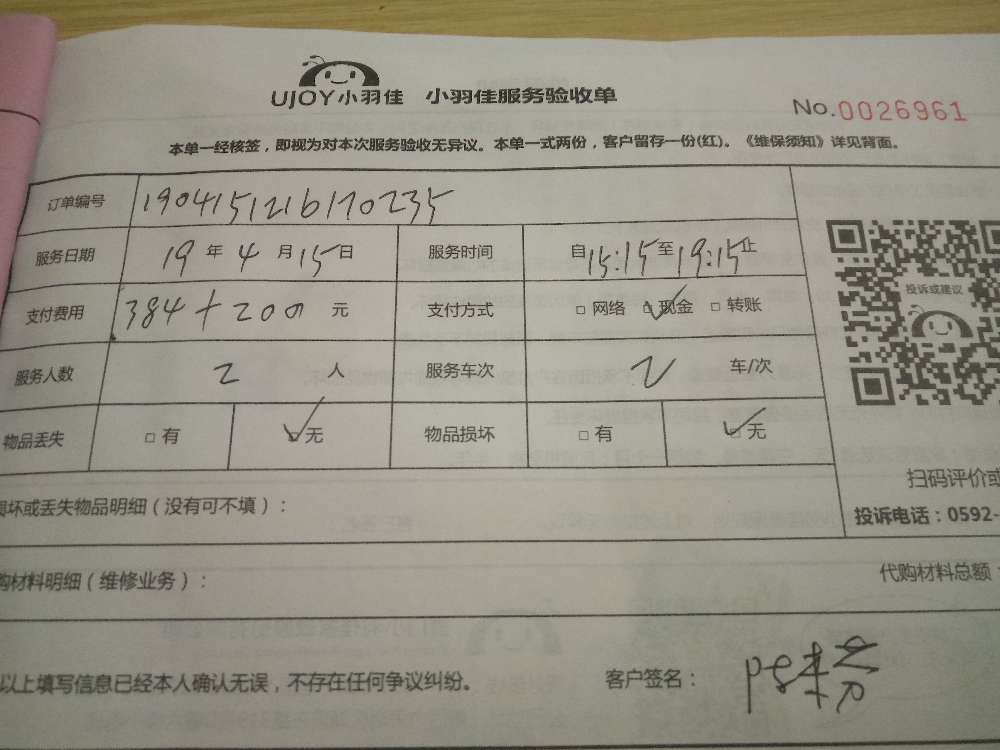 UJOY小羽佳 小羽佳服务验收单
No.0026961
本单一经核签，即视为对本次服务验收无异议。本单一式两份，客户留存一份(红)。《维保须知》详见背面。
订单编号 1904151216170235
服务日期 19 年 4 月 15 日 服务时间 自 15:15 至 19:15 止
支付费用 384+200 元 支付方式 □ 网络 □ 现金 □ 转账
投诉或建议
服务人数 2 人 服务车次 2 车/次
物品丢失 □ 有 □ 无 物品损坏 □ 有 □ 无
扫码评价或
损坏或丢失物品明细（没有可不填）：
投诉电话：0592-
购材料明细（维修业务）：
代购材料总额：
以上填写信息已经本人确认无误，不存在任何争议纠纷。 客户签名：